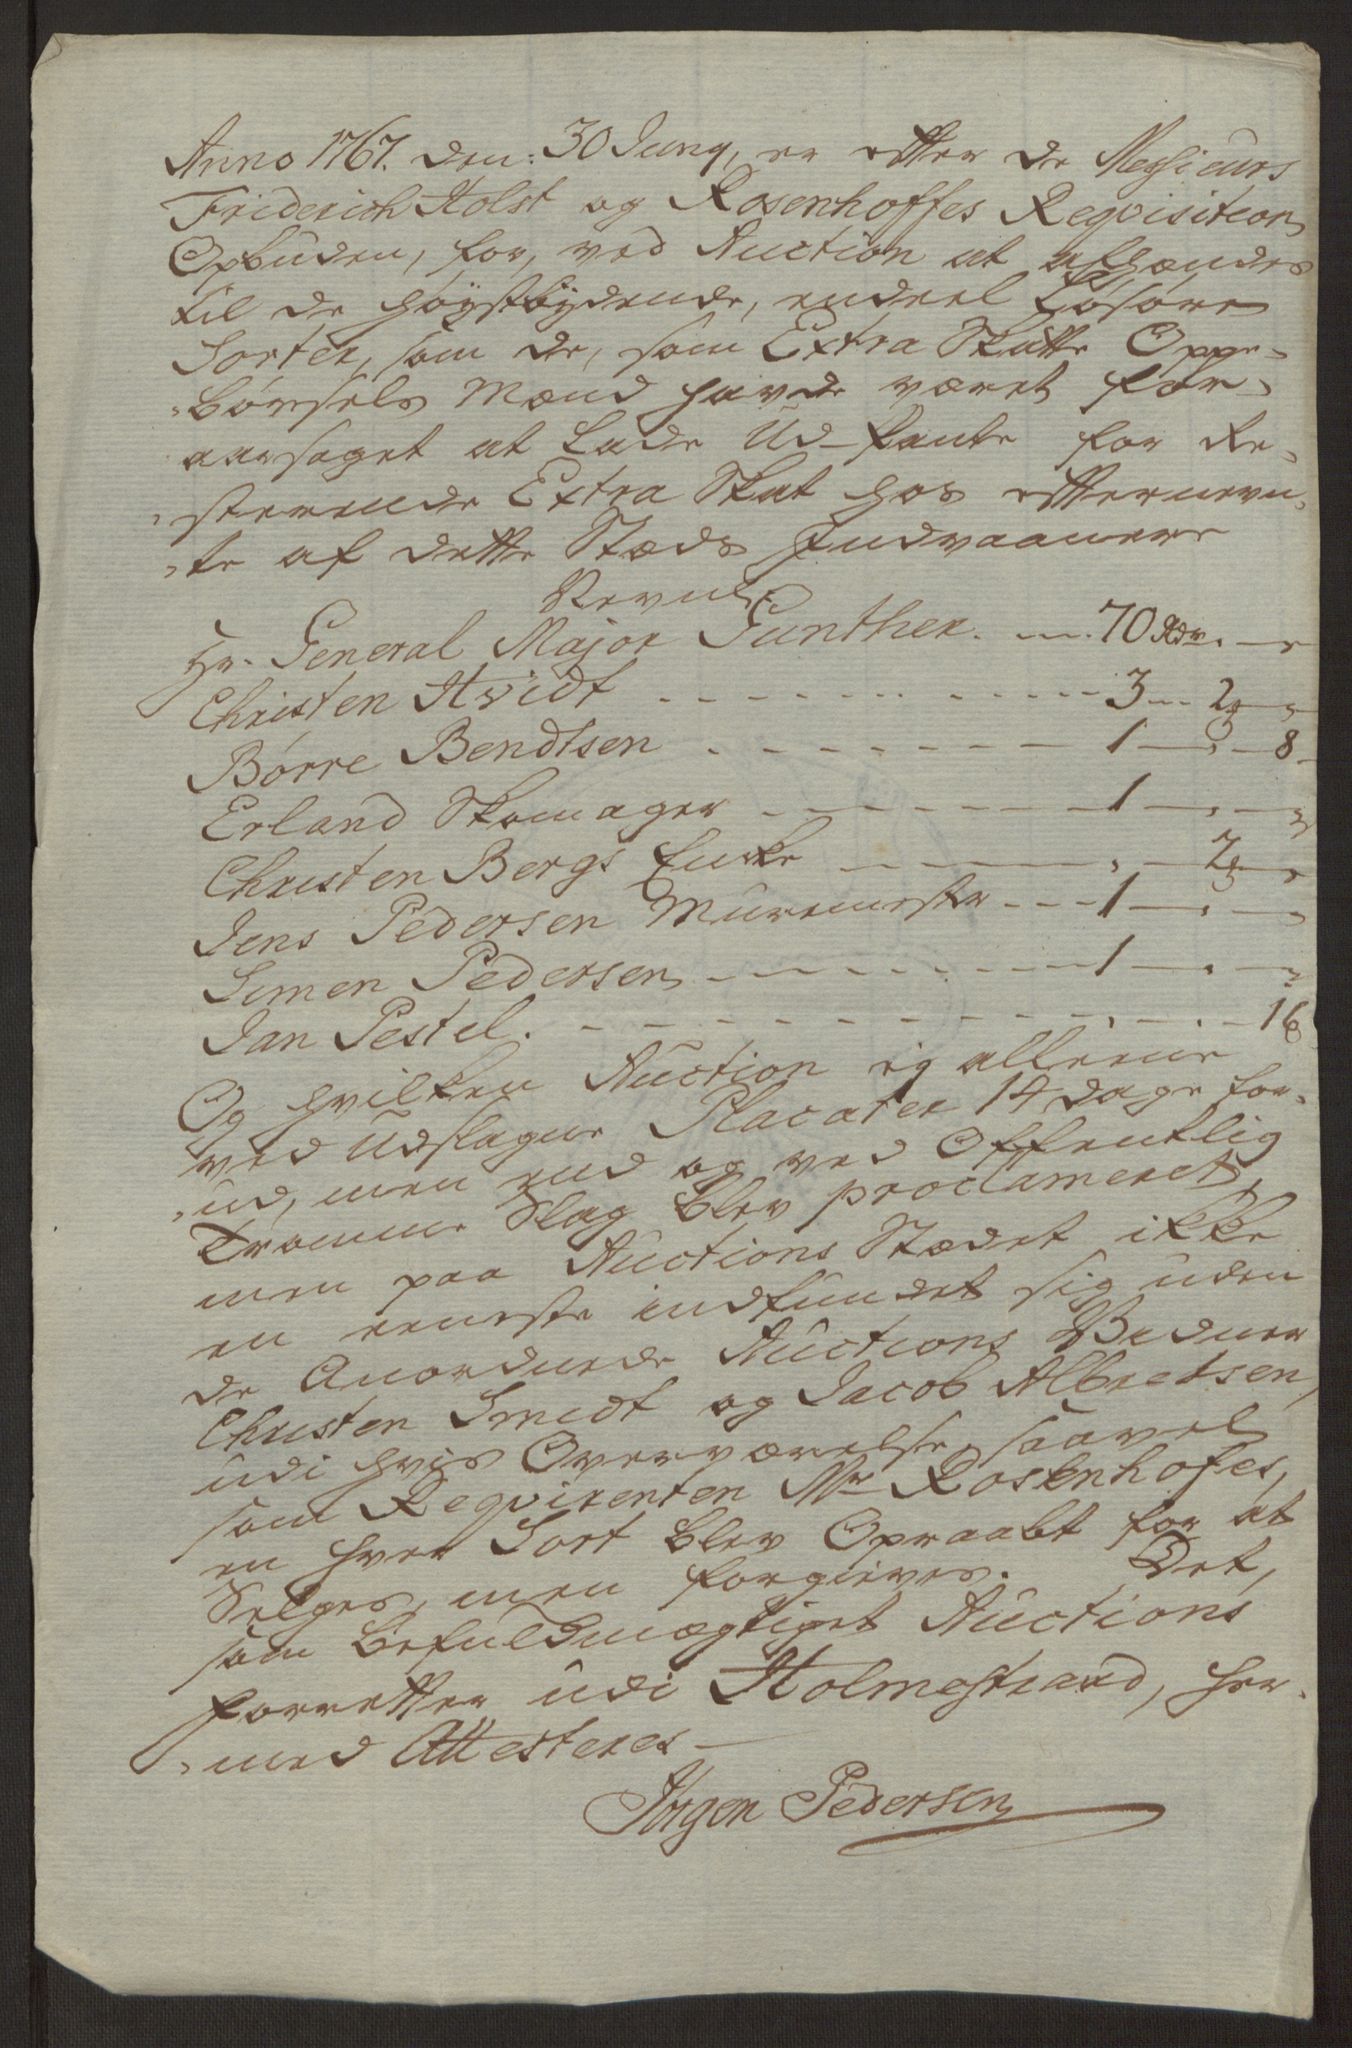 Anno 1767. den: 30 Juny, er efter de Messieurs
Friderich Holst og Rosenhoffes Reqvisition
Opbuden, for, ved Auction at afhændes
til de høystbydende, endeel Løsøre
Sorter, som de, som Extra Skatte Oppe-
-børsels Mænd havde været for-
aarsaget at Lade Ud-pante for Re-
-sterende Extra Skat hos efternevn-
-te af dette Stæds Indvaanere
Nevnl:
Hr. General Major Gunther. - - . 70 Rdr. -
Christen Hvidt - - - - - - 3 - - 2 -
Børre Bendtsen - - - - - - 1 - - 8
Erland Skomager - - - - - 1 - -
Christen Bergs Encke - - - - 2 -
Jens Pedersen Muremester - - - 1 - -
Simen Pedersen - - - - - - 1 - -
Jan Pestel. - - - - - - - - - 16
Og hvilken Auction ej alleene
ved udslagne Placater 14 dage for-
-ud, men end og ved Offentlig
Tromme Slag blev proclameret,
men paa Auctions Stædet ikke
en eeneste indfundet sig uden
de Anordnede Auctions Vidner
Christen Smidt og Jacob Albretsen,
udi hvis Overværelse, saavel
som Reqvirenten Mr Rosenhofes,
en hver Sort blev Opraabt for at
Selges, men forgieves. Det,
som befuldmægtiget Auctions
forretter udi Holmestrand, her-
-med Attesteres -
Jørgen Pedersen